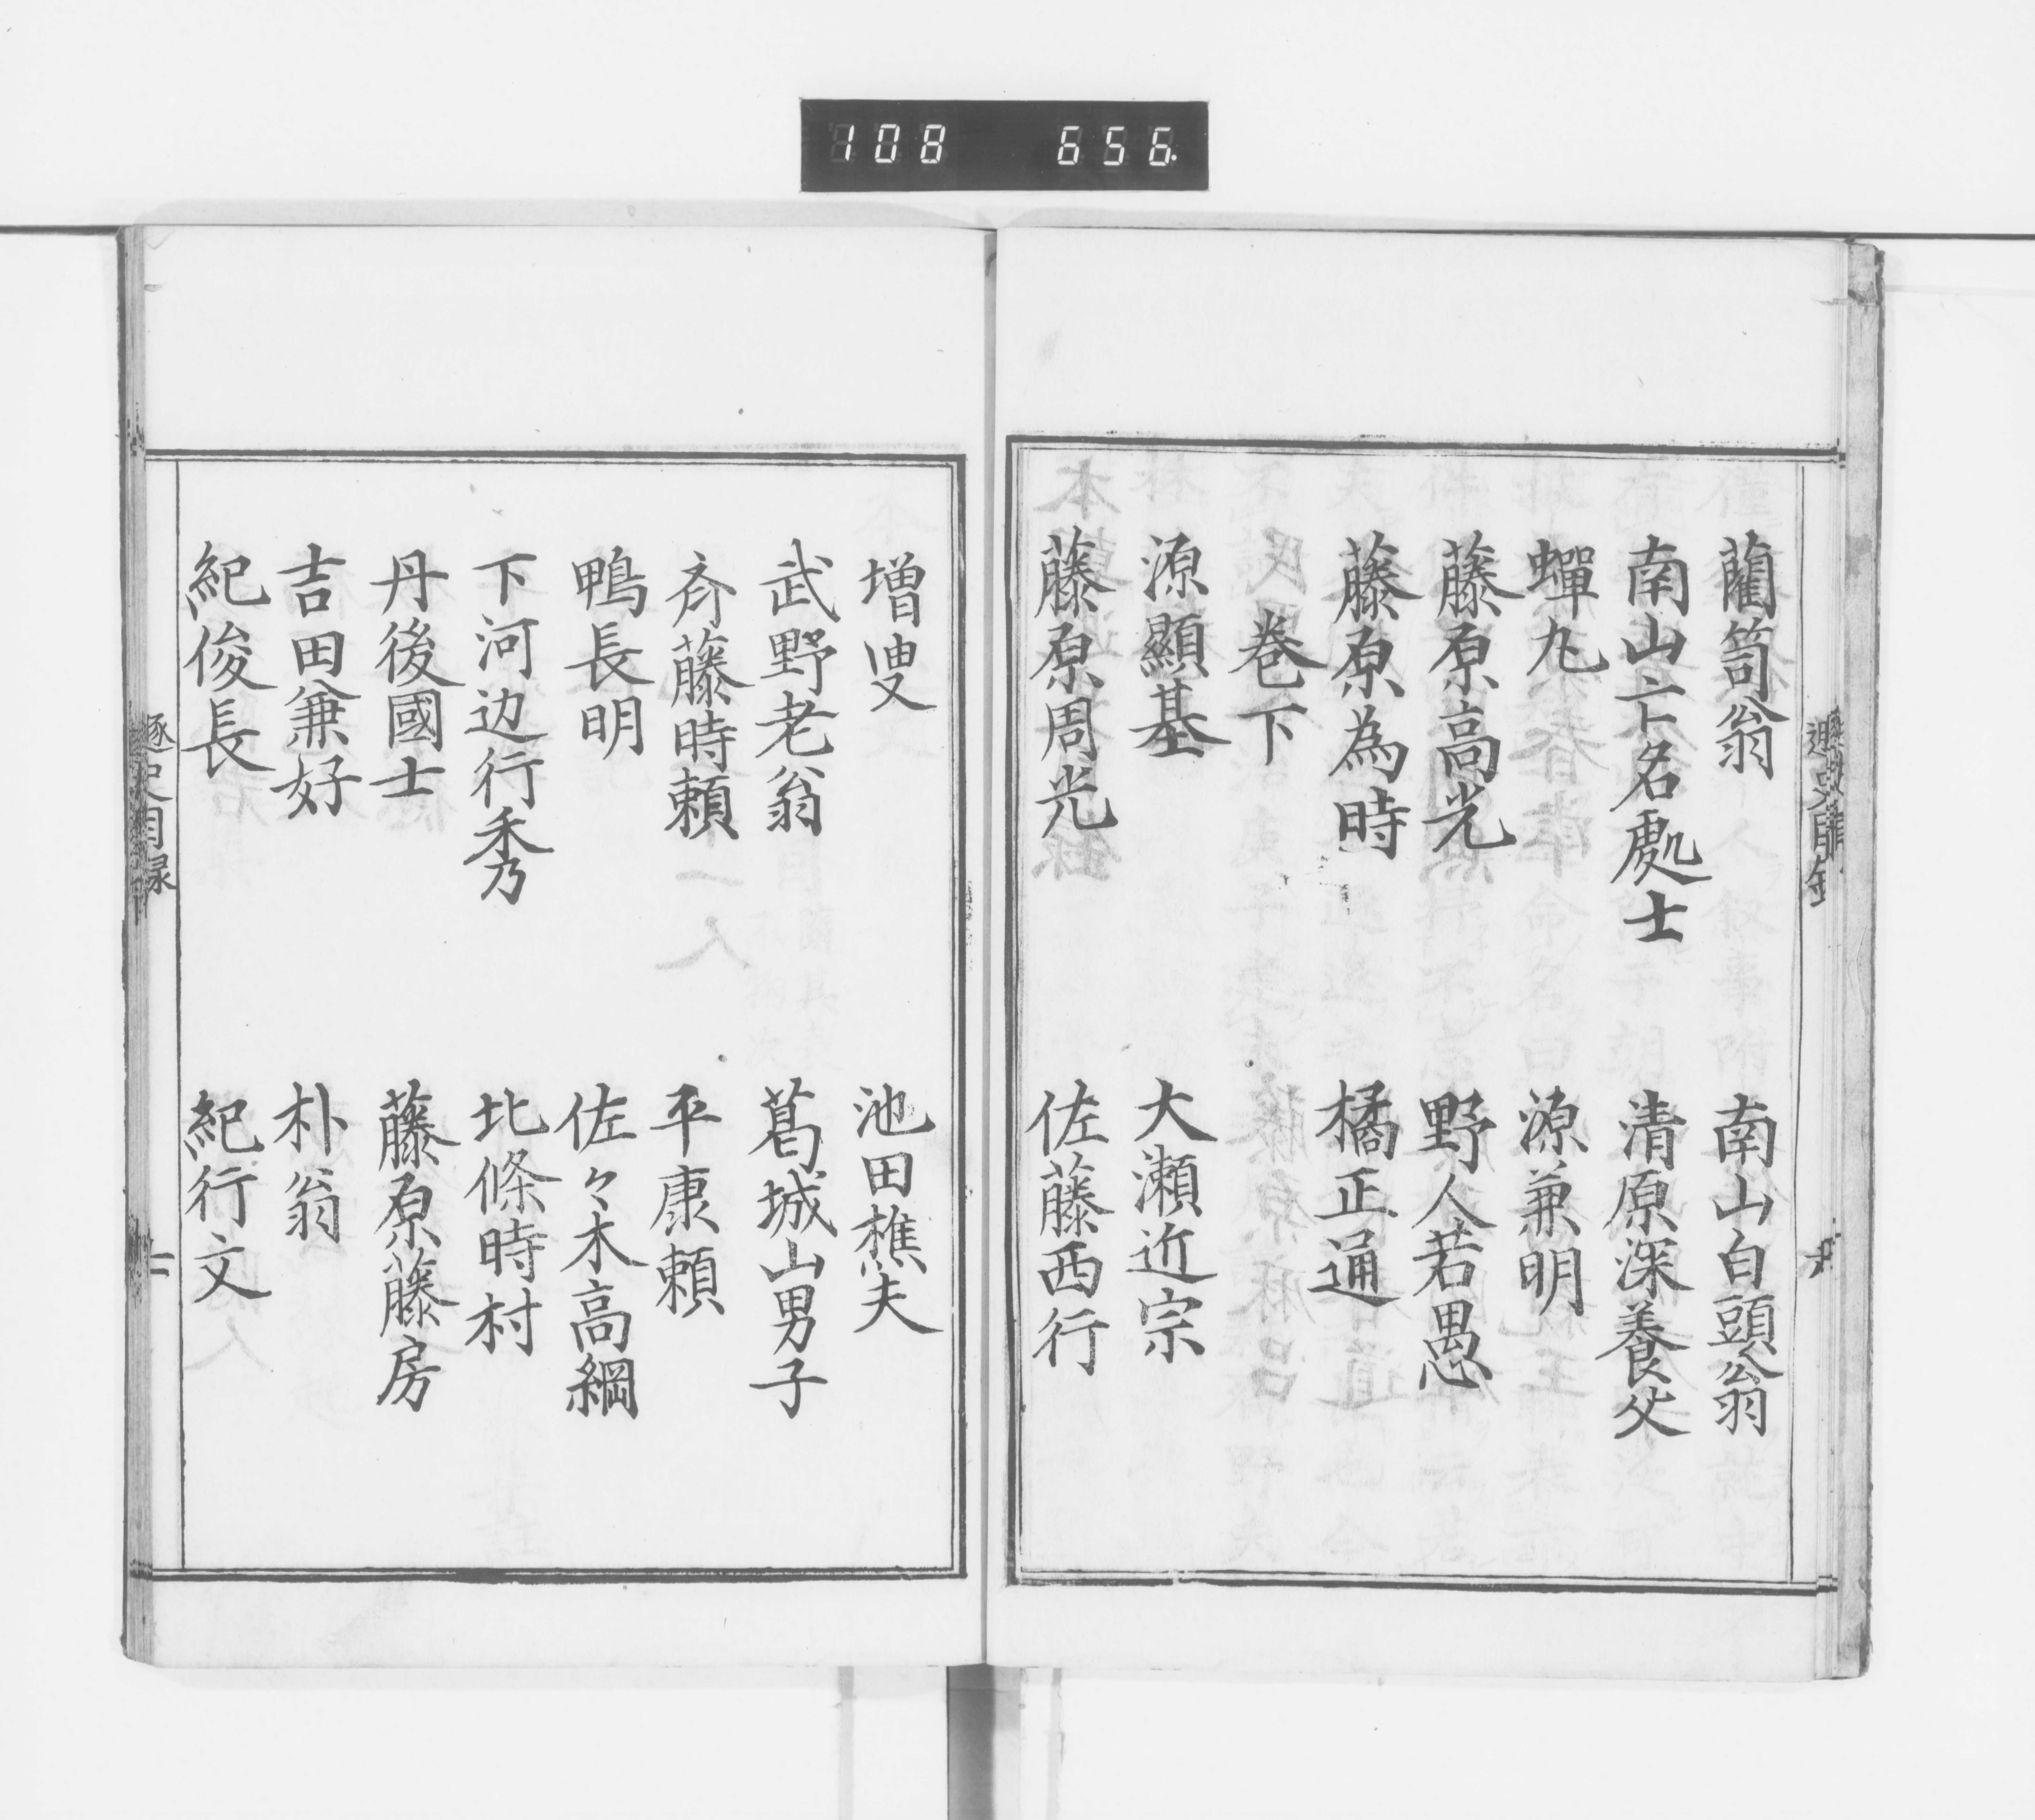 108 656
藺笥翁 南山白頭翁
南山亡名處士 清原深養父
蟬丸 源兼明
藤原高光 野人若愚
藤原為時 橘正通
巻下
源顯基 大瀬近宗
藤原周光 佐藤西行
増叟 池田樵夫
武野老翁 葛城山男子
斎藤時頼 平康頼
鴨長明 佐々木高綱
下河辺行秀 北條時村
丹後國士 藤原藤房
吉田兼好 朴翁
紀俊長 紀行文
遯史目録 二